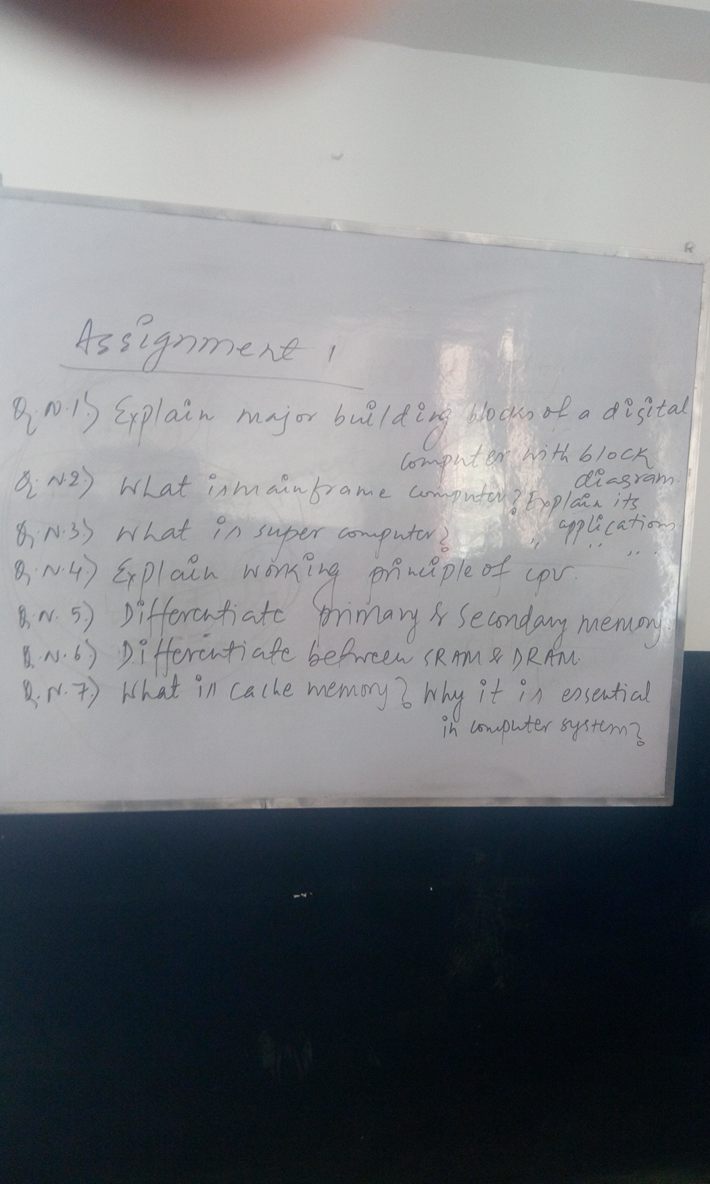 Assignment 1
Q.N.1) Explain major building blocks of a digital
computer with block
diagram.
Q.N.2) What is mainframe computer? Explain its
applications
Q.N.3) What is super computer? " " "
Q.N.4) Explain working principle of CPU.
Q.N.5) Differentiate primary & Secondary memory.
Q.N.6) Differentiate between SRAM & DRAM.
Q.N.7) What is cache memory? Why it is essential
in computer system?